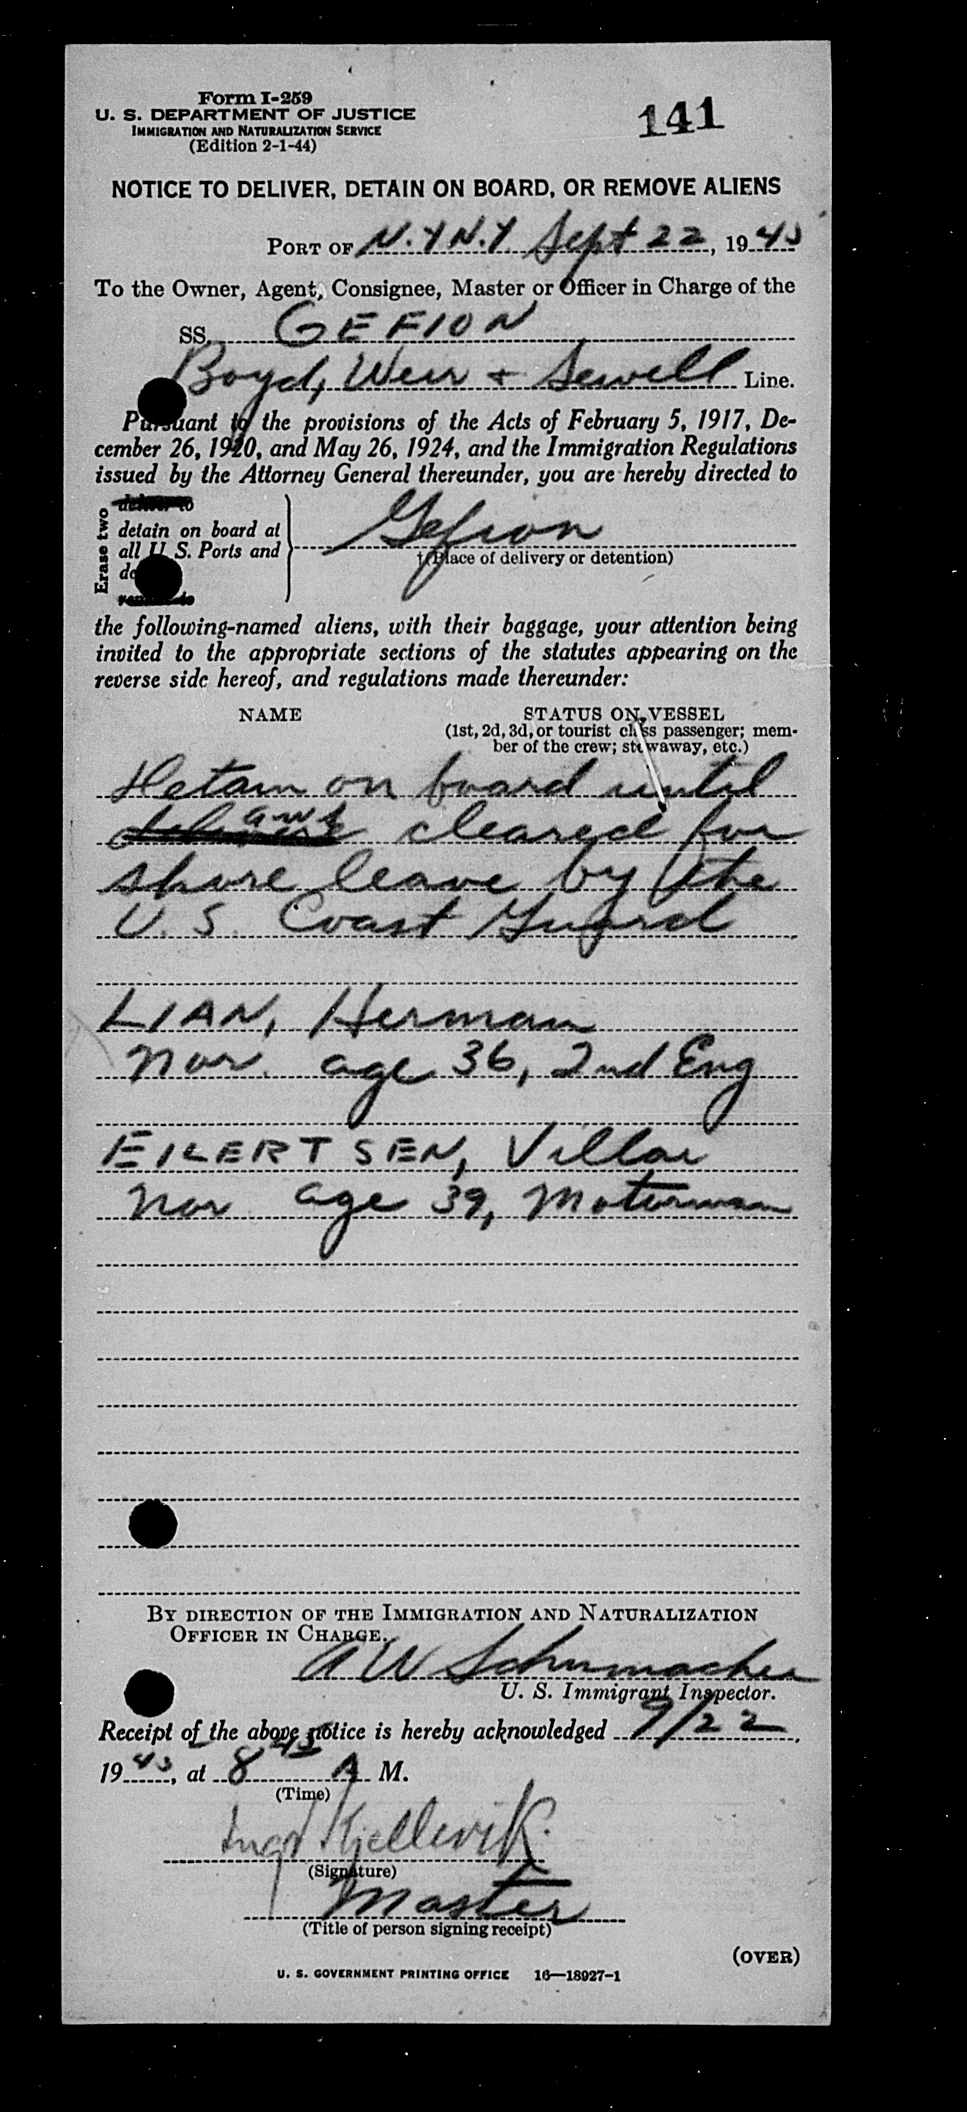 Form I-259
U. S. DEPARTMENT OF JUSTICE
IMMIGRATION AND NATURALIZATION SERVICE
(Edition 2-1-44)
141
NOTICE TO DELIVER, DETAIN ON BOARD, OR REMOVE ALIENS
PORT OF N.Y N.Y Sept 22, 1945
To the Owner, Agent, Consignee, Master or Officer in Charge of the
SS. GEFION
Boyd, Weir + Sewell Line.
Pursuant to the provisions of the Acts of February 5, 1917, De-
cember 26, 1920, and May 26, 1924, and the Immigration Regulations
issued by the Attorney General thereunder, you are hereby directed to
Erase two
deliver to
detain on board at
all U. S. Ports and
remove to
Gefion
†(Place of delivery or detention)
the following-named aliens, with their baggage, your attention being
invited to the appropriate sections of the statutes appearing on the
reverse side hereof, and regulations made thereunder:
NAME STATUS ON VESSEL
(1st, 2d, 3d, or tourist class passenger; mem-
ber of the crew; stowaway, etc.)
Detain on board until
aws cleared for
shore leave by the
U.S. Coast Guard
LIAN, Herman
Nor. age 36, 2nd Eng
EILERTSEN, Villar
Nor age 39, Motorman
BY DIRECTION OF THE IMMIGRATION AND NATURALIZATION
OFFICER IN CHARGE.
A W Schumacher
U. S. Immigrant Inspector.
Receipt of the above notice is hereby acknowledged 9/22,
1945, at 8 45 A M.
(Time)
Ingv Kjellevik.
(Signature)
Master
(Title of person signing receipt)
(OVER)
U. S. GOVERNMENT PRINTING OFFICE 16—18927-1